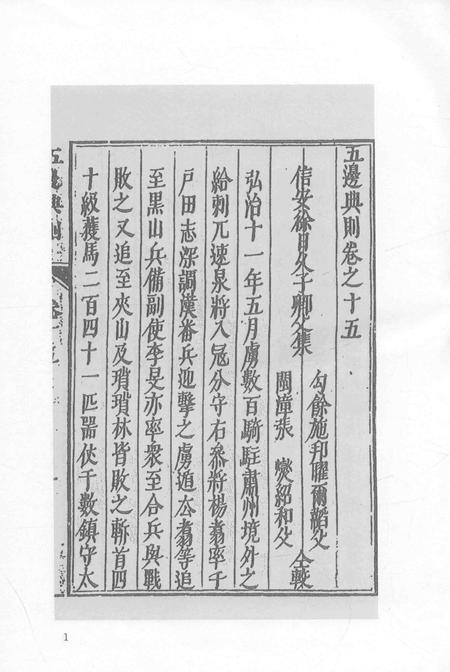 五邊典則卷之十五
信安徐日久子卿父集
勾餘施邦曜爾韜父
閩漳張 燮紹和父
仝較
弘治十一年五月虜數百騎駐肅州境外之
給刺兀速泉將入冦分守右叅將楊翥率千
戶田志深調漢番兵迎擊之虜遁去翥等追
至黑山兵備副使李旻亦率衆至合兵與戰
敗之又追至夾山及瑣瑣林皆敗之斬首四
十級獲馬二百四十一匹噐仗千數鎮守太
五邊典則
1